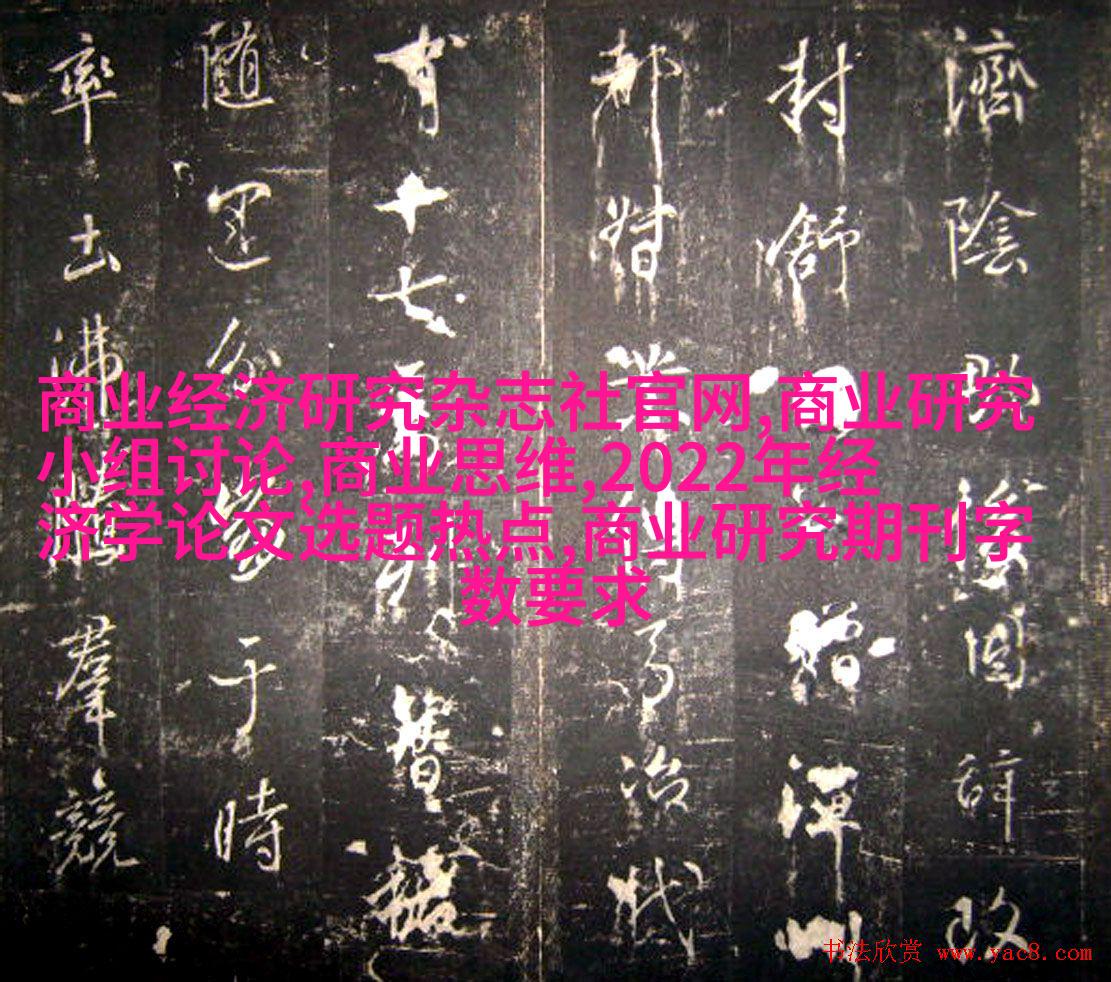 濟陰 因辭改
封舒 贈潭州
都督
有十七 智
隨運 于時
率土沸騰羣競
商业经济研究杂志社官网,商业研究
小组讨论,商业思维,2022年经
济学论文选题热点,商业研究期刊字
数要求
书法欣赏 www.yac8.com